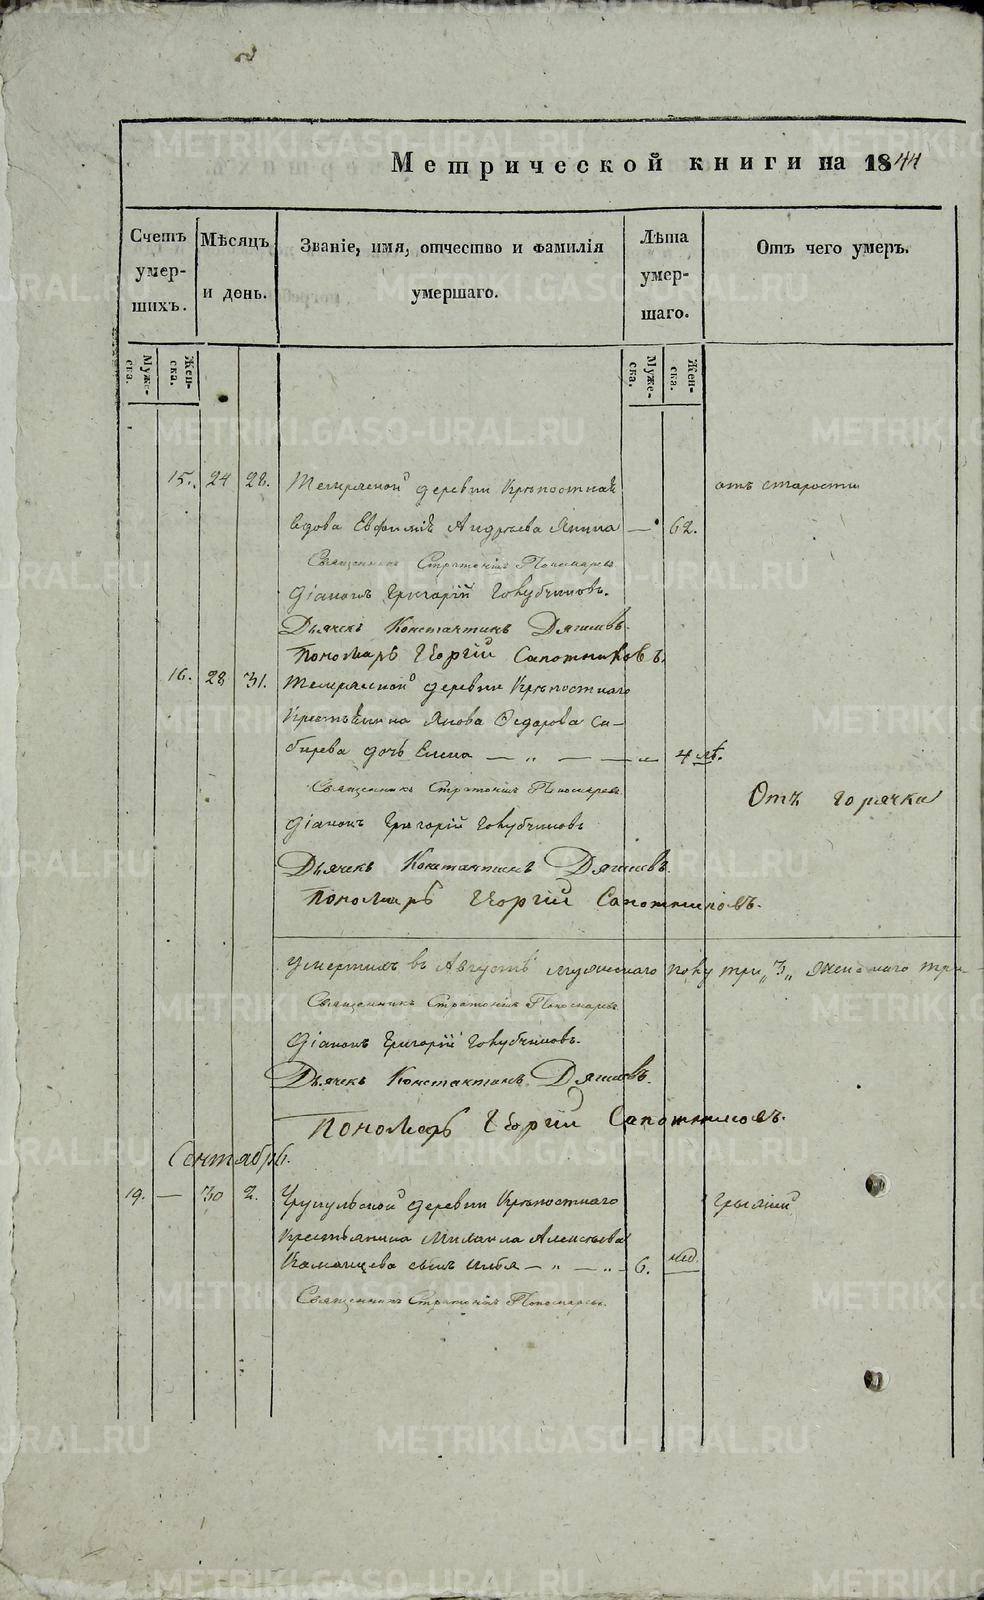 Метрической книги на 1844
Счетъ умер-шихъ.
Мѣсяцъ и день.
Званіе, имя, отчество и фамилія умершаго.
Лѣта умер-шаго.
Отъ чего умеръ.
Муже-ска.
Жен-ска.
Муже-ска.
Жен-ска.
15. 24 28. деревни Крѣпостная отъ старости
вдова Евфимія Андреева — 62.
Священникъ Стратоникъ Пономаревъ
Діаконъ Григорій Голубчиковъ.
Дьячекъ Константинъ Дягилевъ.
Пономарь Георгій Сапожниковъ.
16. 28 31. деревни Крѣпостнаго
Крестьянина Якова Федорова Си-
бирева дочь Елена — „ — — „ 4 лѣ.
Священникъ Стратоникъ Пономаревъ
Отъ горячки
Діаконъ Григорій Голубчиковъ
Дьячекъ Константинъ Дягилевъ.
Пономарь Георгій Сапожниковъ.
Умершихъ въ Августѣ мужескаго полу три „3„ женскаго три
Священникъ Стратоникъ Пономаревъ
Діаконъ Григорій Голубчиковъ.
Дьячекъ Константинъ Дягилевъ.
Пономарь Георгій Сапожниковъ.
Сентябрь.
19. — 30 2. деревни Крѣпостнаго
Крестьянина Михаила Алексѣева
сынъ Илья — „ — „ — 6. нед.
Священникъ Стратоникъ Пономаревъ.
METRIKI.GASO-URAL.RU